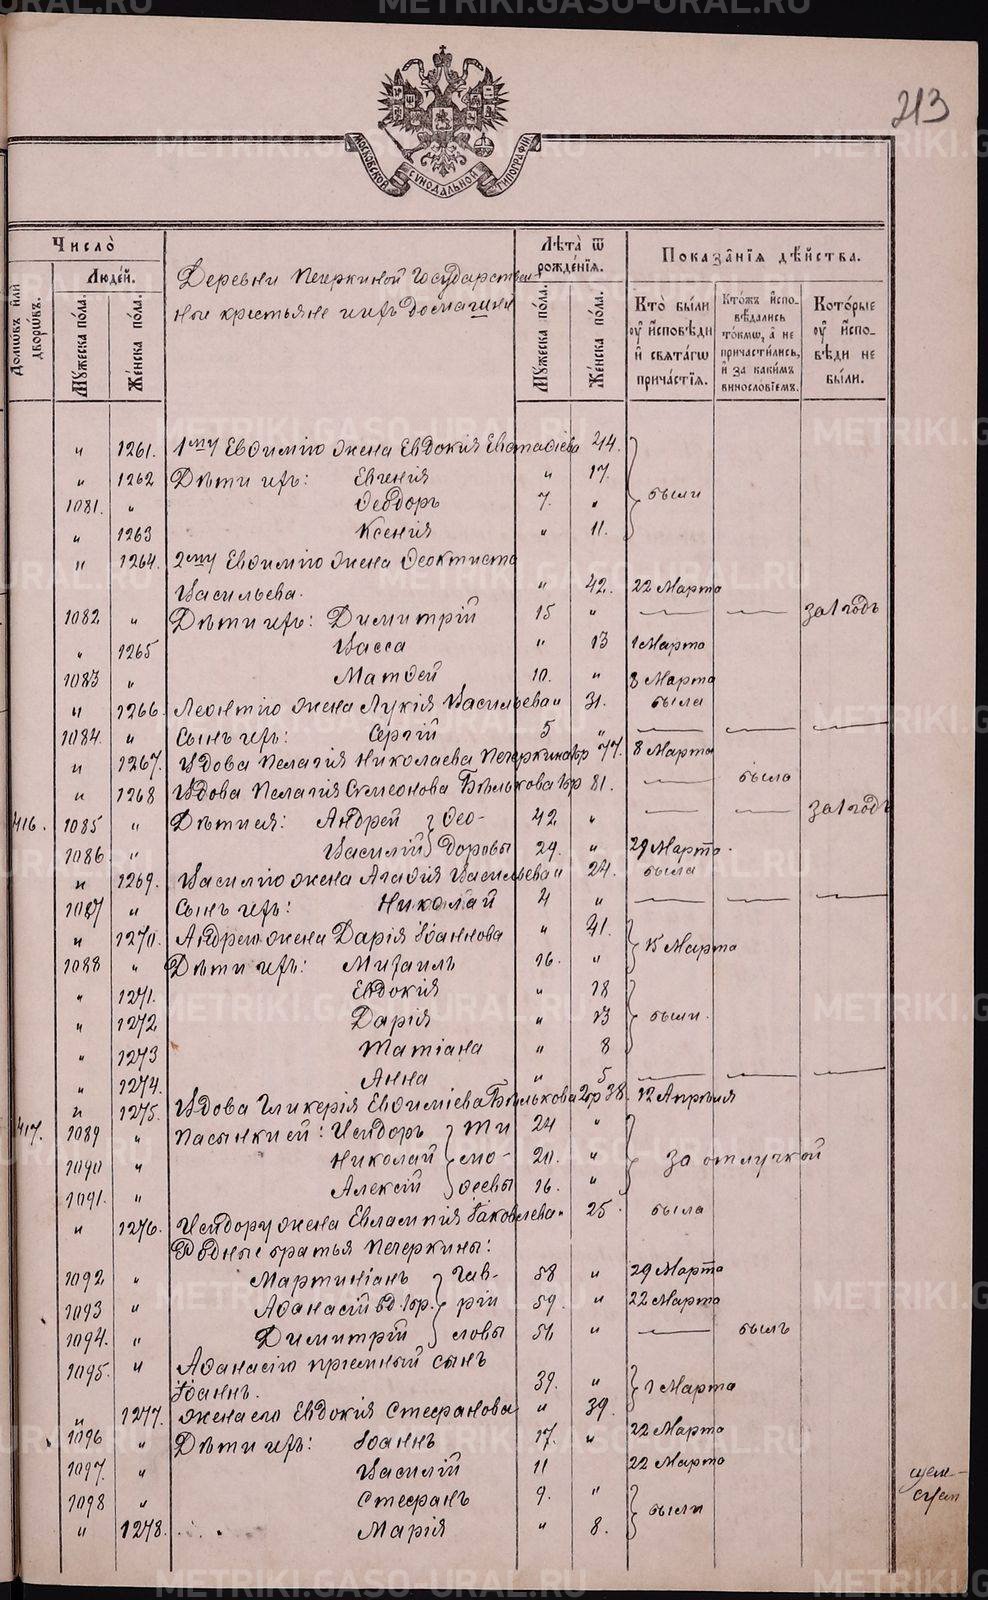 METRIKI.GASO-URAL.RU
213
МОСКОВСКОЙ СѴНОДАЛЬНОЙ ТИПОГРАФІИ
Число̀
Людéй.
Домѡ́въ и҆лѝ дворѡ́въ.
Мꙋ́жеска по́ла.
Же́нска по́ла.
Деревни Печеркиной Государствен-
ные крестьяне и ихъ домашніи
Лѣ́та ѿ рожде́нїѧ.
Мꙋ́жеска по́ла.
Же́нска по́ла.
Показа̑нїѧ дѣ́йства.
Кто̀ бы́ли ᲂу҆ и҆сповѣ́ди и҆ свѧта́гѡ прича́стїѧ.
Кто́жъ и҆сповѣ́дались то́кмѡ, а҆ не причасти́лись, и҆ за каки́мъ винослові́емъ.
Кото́рые ᲂу҆ и҆сповѣ́ди не бы́ли.
" 1261. 1му Евѳимію жена Евдокія Евстафіева 44.
" 1262 Дѣти ихъ: Евгенія " 17. были
1081. " Ѳеодоръ 7. "
" 1263 Ксенія " 11.
" 1264. 2му Евѳимію жена Ѳеоктиста
Васильева. " 42. 22 Марта
1082 " Дѣти ихъ: Димитрій 15 " — — за 1 годъ
" 1265 Васса " 13 1 Марта
1083 " Матѳей 10. " 8 Марта
" 1266. Леонтію жена Лукія Васильева " 31. была
1084. " Сынъ ихъ: Сергій 5 " — — —
" 1267. Вдова Пелагія Николаева Печеркина 77. 8 Марта
" 1268 Вдова Пелагія Симеонова Бѣлькова 81. — была
416. 1085 " Дѣти ея: Андрей } Ѳео- 42. " — — за 1 годъ
1086 " Василій } доровы 29. " 29 Марта.
" 1269. Василію жена Агафія Васильева " 24. была
1087 " Сынъ ихъ: Николай 4 " — — —
" 1270. Андрею жена Дарія Іоаннова " 41.
1088 " Дѣти ихъ: Михаилъ 16. " 15 Марта
" 1271. Евдокія " 18
" 1272 Дарія " 13 были.
" 1273 Татіана " 8
" 1274. Анна " 5 — — —
" 1275. Вдова Гликерія Евѳиміева Бѣлькова 38. 12 Апрѣля
417. 1089 " Пасынки ей: Исидоръ } Ти 24 "
1090 " Николай } мо- 20. " за отлучкой
1091. " Алексій } ѳеевы 16. "
" 1276. Исидору жена Евлампія Іаковлева " 25. была
Родные братья Печеркины:
1092 " Мартиніанъ } Гав- 58 " 29 Марта
1093 " Аѳанасій вд. } рій 59. " 22 Марта
1094. " Димитрій } ловы 51 " — былъ
1095. " Аѳанасію пріемный сынъ
Іоаннъ. 39. " 1 Марта
" 1277. Жена его Евдокія Стефанова " 39.
1096 " Дѣти ихъ: Іоаннъ 17. " 22 Марта
1097. " Василій 11 22 Марта
1098 " Стефанъ 9. " были
" 1278. Марія " 8.